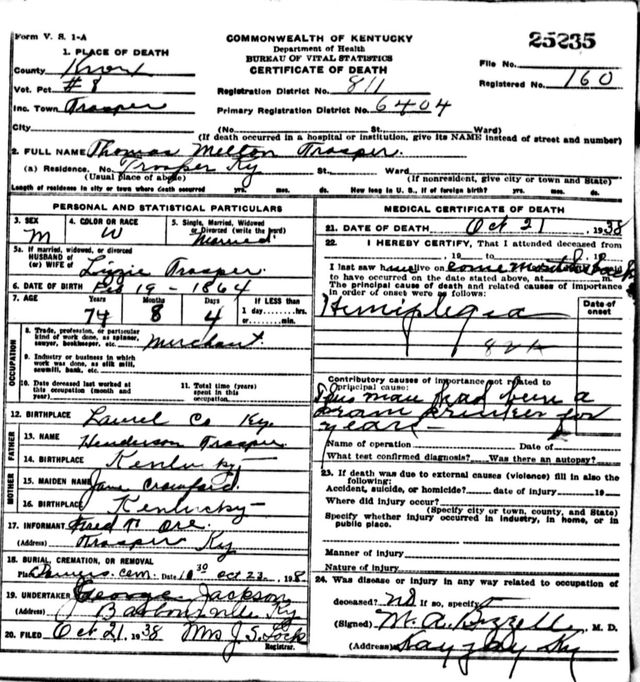 Form V. S. 1-A
COMMONWEALTH OF KENTUCKY
Department of Health
BUREAU OF VITAL STATISTICS
CERTIFICATE OF DEATH
25235
File No.
Registered No. 160
1. PLACE OF DEATH
County Knox
Vot. Pct #8
Inc. Town Trosper
City
Registration District No. 811
Primary Registration District No. 6404
(No. St. Ward)
(If death occurred in a hospital or institution, give its NAME instead of street and number)
2. FULL NAME Thomas Melton Trosper.
(a) Residence. No. Trosper Ky St. Ward
(Usual place of abode) (If nonresident, give city or town and State)
Length of residence in city or town where death occurred yrs. mos. ds. How long in U. S., if of foreign birth? yrs. mos. ds.
PERSONAL AND STATISTICAL PARTICULARS
3. SEX M
4. COLOR OR RACE W
5. Single, Married, Widowed or Divorced (write the word) Married
5a. If married, widowed, or divorced
HUSBAND of
(or) WIFE of Lizzie Trosper.
6. DATE OF BIRTH Feb 19 - 1864
7. AGE Years 74 Months 8 Days 4
If LESS than
1 day......hrs.
or......min.
OCCUPATION
8. Trade, profession, or particular
kind of work done, as spinner,
sawyer, bookkeeper, etc. Merchant
9. Industry or business in which
work was done, as silk mill,
sawmill, bank, etc.
10. Date deceased last worked at
this occupation (month and
year)
11. Total time (years)
spent in this
occupation
12. BIRTHPLACE Laurel Co Ky.
FATHER
13. NAME Henderson Trosper
14. BIRTHPLACE Kentucky
MOTHER
15. MAIDEN NAME Jane Crawford.
16. BIRTHPLACE Kentucky
17. INFORMANT Ore.
(Address) Trosper Ky
18. BURIAL, CREMATION, OR REMOVAL
Place Cem. Date Oct 22, 1938
19. UNDERTAKER George Jackson
(Address) Barbourville Ky
20. FILED Oct 21 1938 Mrs J. S. Lock
Registrar.
MEDICAL CERTIFICATE OF DEATH
21. DATE OF DEATH Oct 21, 1938
22. I HEREBY CERTIFY, That I attended deceased from
, 19 to , 19
I last saw him alive on some months back
to have occurred on the date stated above, at m.
The principal cause of death and related causes of importance
in order of onset were as follows:
Date of
onset
Hemiplegia
82A
Contributory causes of importance not related to
principal cause:
This man had been a
dram drinker for
years
Name of operation Date of
What test confirmed diagnosis? Was there an autopsy?
23. If death was due to external causes (violence) fill in also the
following:
Accident, suicide, or homicide? date of injury 19
Where did injury occur?
(Specify city or town, county, and State)
Specify whether injury occurred in industry, in home, or in
public place.
Manner of injury
Nature of injury
24. Was disease or injury in any way related to occupation of
deceased? No If so, specify
(Signed) M. A. Bizzell, M. D.
(Address) Kayjay Ky